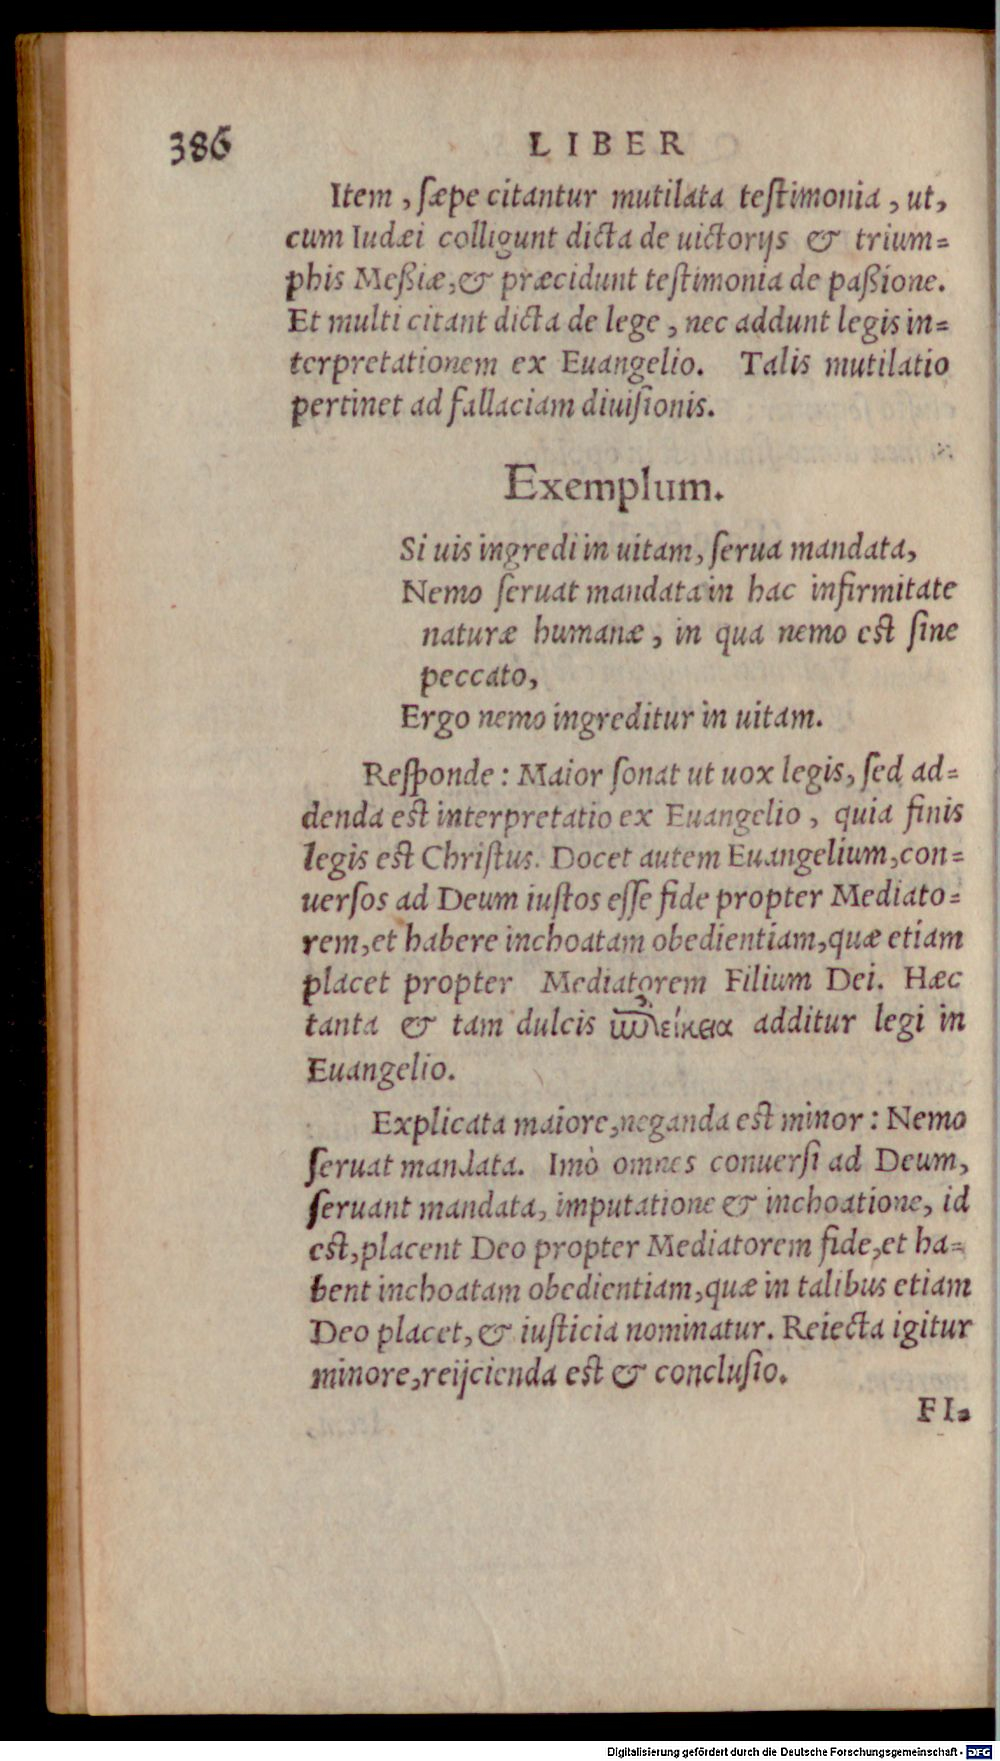 386 LIBER
Item, ſæpe citantur mutilata teſtimonia, ut,
cum Iudæi colligunt dicta de uictorijs & trium=
phis Meßiæ, & præcidunt teſtimonia de paßione.
Et multi citant dicta de lege, nec addunt legis in=
terpretationem ex Euangelio. Talis mutilatio
pertinet ad fallaciam diuiſionis.
Exemplum.
Si uis ingredi in uitam, ſerua mandata,
Nemo ſeruat mandata in hac infirmitate
naturæ humanæ, in qua nemo eſt ſine
peccato,
Ergo nemo ingreditur in uitam.
Reſponde: Maior ſonat ut uox legis, ſed ad=
denda eſt interpretatio ex Euangelio, quia finis
legis eſt Chriſtus. Docet autem Euangelium, con=
uerſos ad Deum iuſtos eſſe fide propter Mediato=
rem, et habere inchoatam obedientiam, quæ etiam
placet propter Mediatorem Filium Dei. Hæc
tanta & tam dulcis ἐπιείκεια additur legi in
Euangelio.
Explicata maiore, neganda eſt minor: Nemo
ſeruat mandata. Imò omnes conuerſi ad Deum,
ſeruant mandata, imputatione & inchoatione, id
eſt, placent Deo propter Mediatorem fide, et ha=
bent inchoatam obedientiam, quæ in talibus etiam
Deo placet, & iuſticia nominatur. Reiecta igitur
minore, reijcienda eſt & concluſio.
FI=
Digitalisierung gefördert durch die Deutsche Forschungsgemeinschaft - DFG